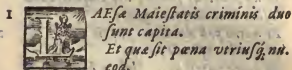 1 LAEsæ Maiestatis criminis duo
sunt capita.
Et quæ sit pœna utriusq́; nu.
eod.